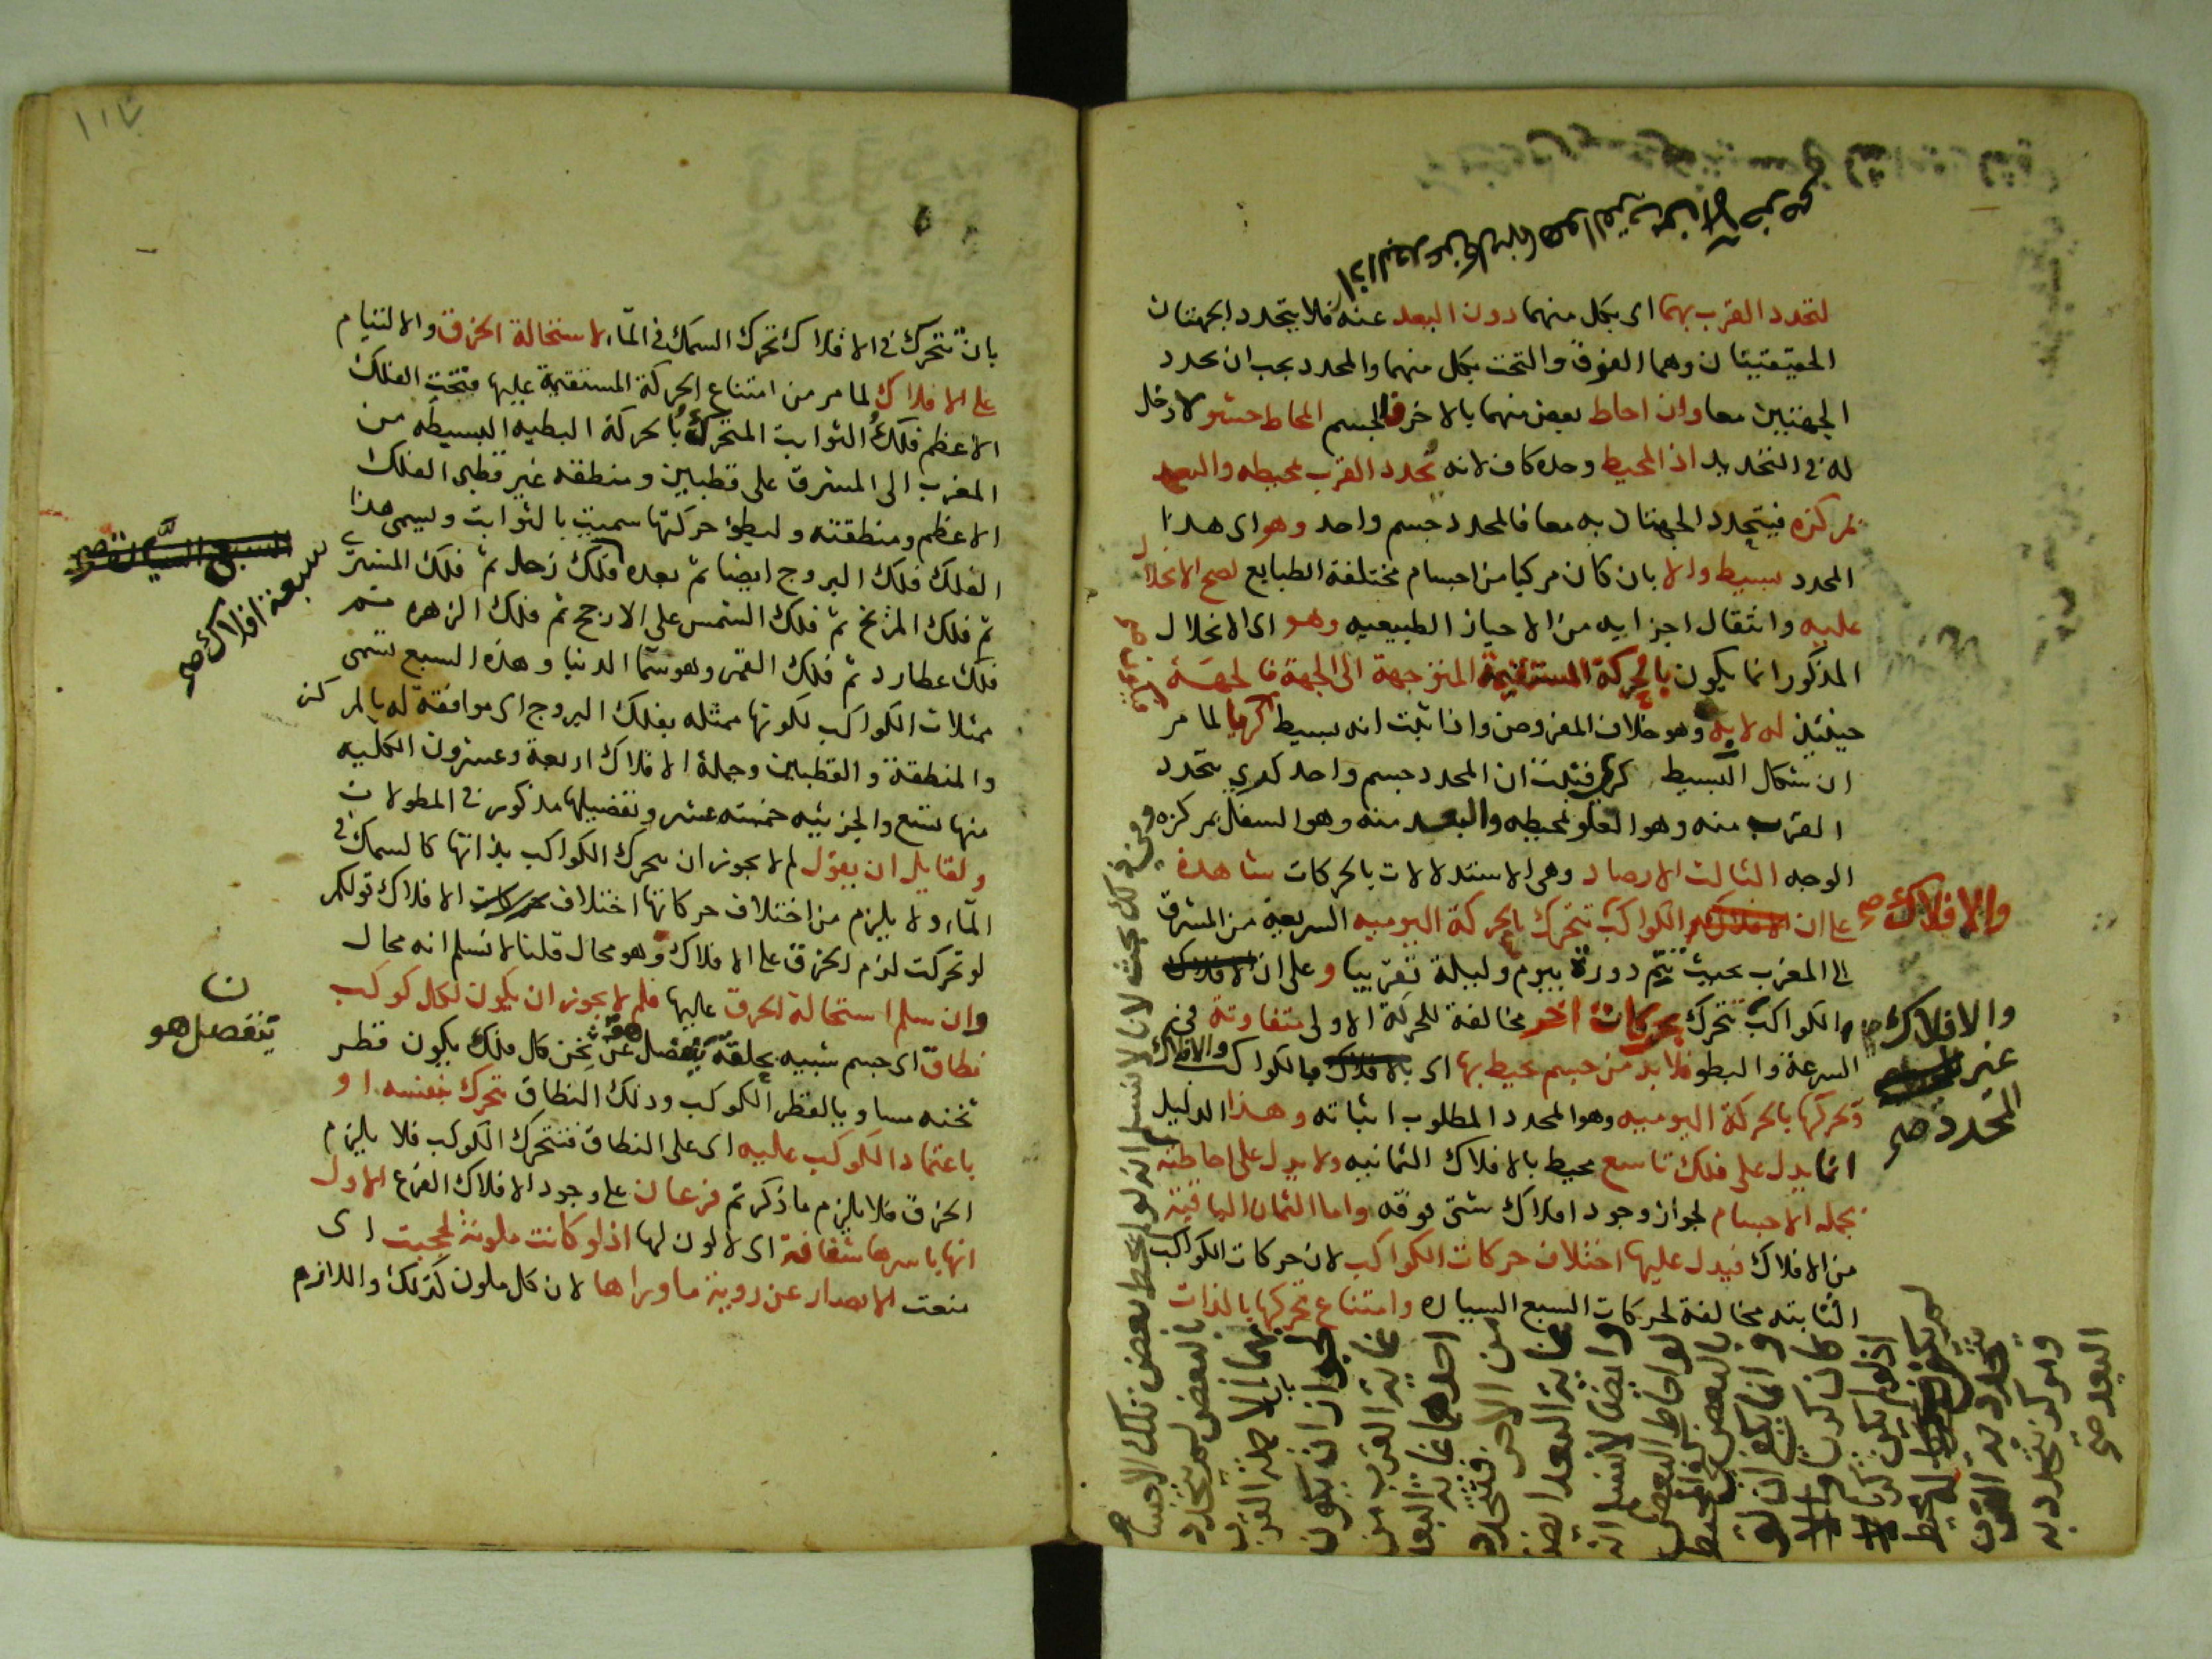 لتحدد القرب بهما اى بكل منهما دون البعد عنه فلا يتحدد الجهتان
الحقيقيتان وهما الفوق والتحت بكل منهما والمحدد يجب ان يحدد
الجهتين معا وان احاط بعض منهما بالاخر فالجسم المحاط حشو لا دخل
له فى التحديد اذ المحيط وحده كاف لانه يحدد القرب بمحيطه والبعد
بمركزه فيتحدد الجهتان به معا فالمحدد جسم واحد وهو اى هذا
المحدد بسيط والا بان كان مركبا من اجسام مختلفة الطبايع لصح الانحلال
عليه وانتقال اجزايه من الاحياز الطبيعيه وهو اى الانحلال
المذكور انما يكون بالحركة المستقيمة المتوجهة الى الجهة فالجهة
حينئذ له لا به وهو خلاف المفروض واذا ثبت انه بسيط لما مر
ان شكل البسيط كرى فثبت ان المحدد جسم واحد كرى يتحدد
القرب منه وهو العلو بمحيطه والبعد منه وهو السفل بمركزه
الوجه الثالث الارصاد وهى الاستدلالات بالحركات شاهدة
على ان الكواكب تتحرك بالحركة اليوميه السريعة من المشرق
والافلاك صح
الى المغرب بحيث تتم دورة بيوم وليلة تقريبا وعلى ان الافلاك
والكواكب تتحرك بحركات اخر مخالفة للحركة الاولى متفاوتة فى
والافلاك
غير
المحدد صح
السرعة والبطو فلا بد من جسم محيط بها اى بالافلاك بالكواكب والافلاك
وتحركها بالحركة اليوميه وهو المحدد المطلوب اثباته وهذا الدليل
انما يدل على فلك تاسع محيط بالافلاك الثمانيه ولا يدل على احاطته
بجمله الاجسام لجواز وجود افلاك شتى فوقه واما الثمان الباقية
من الافلاك فيدل عليها اختلاف حركات الكواكب لان حركات الكواكب
الثابته مخالفة لحركات السبع السياره وامتناع تحركها بالذات
وفى كل بحث لانا لا نسلم انه لو لم يحط بعض تلك الاجسام
بالبعض لم يتحدد
بهما الا جهة القرب
لجواز ان يكون
غاية القرب من
احدهما غاية البعد
من الاخر فتتحدد
غاية البعد ايضا
وايضا لا نسلم انه
لو احاط البعض
بالبعض المحيط
وانما يكفى ان لو
كان كريا
اذ لو لم يكن كريا
لم يكن له محيط
يتحدد به القرب
ومركز يتحدد به
البعد صح
١١٧
بان تتحرك فى الافلاك تحرك السمك فى الماء لاستحالة الخرق والالتيام
على الافلاك لما مر من امتناع الحركة المستقيمة عليها فتحت الفلك
الاعظم فلك الثوابت المتحرك بالحركة البطيه البسيطه من
المغرب الى المشرق على قطبين ومنطقه غير قطبى الفلك
الاعظم ومنطقته ولبطؤ حركتها سميت بالثوابت ويسمى هذا
الفلك فلك البروج ايضا ثم بعده فلك زحل ثم فلك المشترى
سبعة افلاك صح
السبع السيارة صح
ثم فلك المريخ ثم فلك الشمس على الارجح ثم فلك الزهره ثم
فلك عطارد ثم فلك القمر وهو سما الدنيا وهذه السبع تسمى
ممثلات الكواكب لكونها ممثله بفلك البروج اى موافقة له بالمركز
والمنطقة والقطبين وجملة الافلاك اربعة وعشرون الكليه
منها تسع والجزئيه خمسة عشر وتفصيلها مذكور فى المطولات
ولقايل ان يقول لم لا يجوز ان يتحرك الكواكب بذاتها كالسمك فى
الماء ولا يلزم من اختلاف حركاتها اختلاف حركات الافلاك قولكم
لو تحركت لزم الخرق على الافلاك وهو محال قلنا لا نسلم انه محال
وان سلم استحالة الخرق عليها فلم لا يجوز ان يكون لكل كوكب
نطاق اى جسم شبيه بحلقة ينفصل هو عن ثخن كل فلك يكون قطر
ن
ينفصل هو
ثخنه مساويا لقطر الكوكب وذلك النطاق تحرك بنفسه او
باعتماد الكوكب عليه اى على النطاق فتتحرك الكوكب فلا يلزم
الخرق فلا يلزم ما ذكرتم فرعان على وجود الافلاك الفرع الاول
انها باسرها شفافة اى لا لون لها اذ لو كانت ملونة لحجبت اى
منعت الابصار عن روية ما وراها لان كل ملون كذلك واللازم